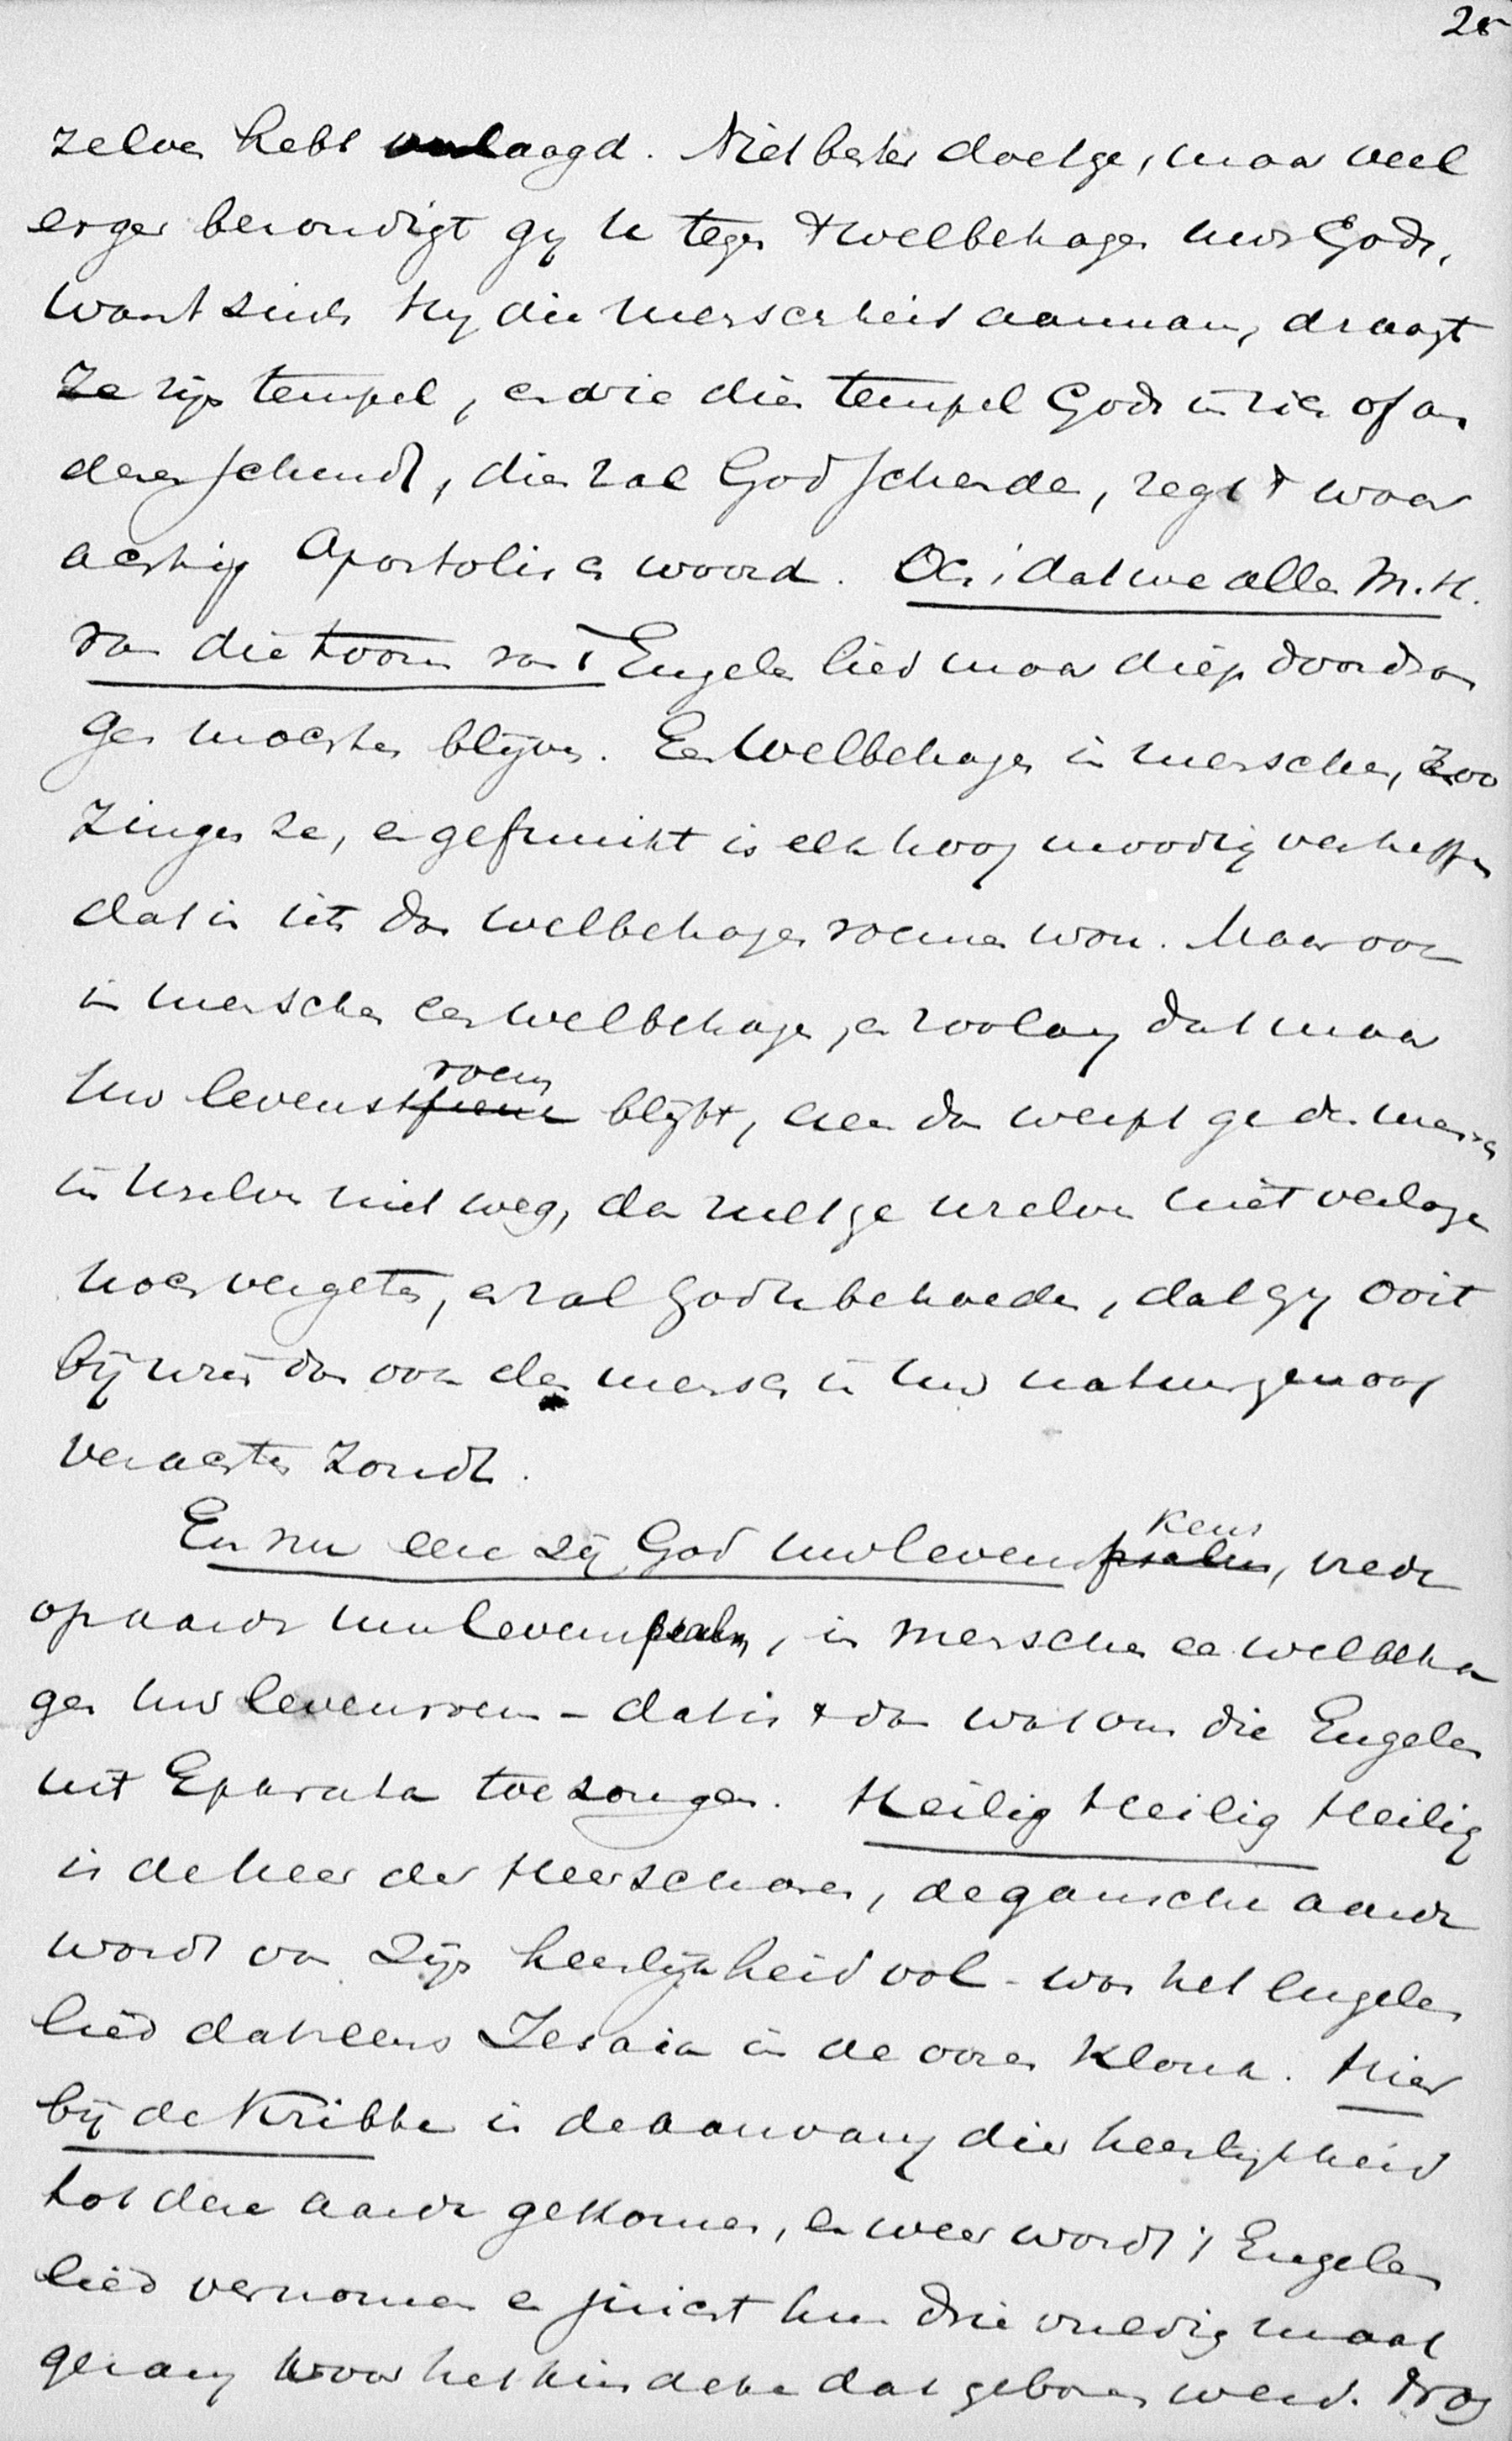 25
zelven hebt verlaagd. Niet beter doet ge, maar veel
erger bezondigt gij U tegen 't welbehagen uws Gods,
want sinds Hij die menschheid aannam, draagt
ze zijn tempel, en wie dien tempel Gods in zich of an
deren schendt, dien zal God schenden, zegt 't waar
achtig Apostolisch woord. Och, dat we allen M. H.
van die toon van 't Engelen lied maar diep doordron
gen mochten blijven. Een Welbehagen in menschen, zoo
zingen ze, en gefnuikt is elk hoogmoedig verheffen
dat in iets dan welbehagen roemen wou. Maar ook
in menschen een welbehagen, en zoolang dat maar
Uw levensroem blijft, neen dan werpt ge den mensch
in Uzelven niet weg, dan zult ge uzelven niet verlagen
noch vergeten, en zal God U behoeden, dat gij ooit
bij wien dan ook den mensch in Uw natuurgenoot
verachten zoudt.
En nu eere zij God Uw levenskeus, vrede
op aarde Uw levenspsalm, in menschen een welbeha
gen Uw levensroem – dat is 't dan wat ons die Engelen
uit Ephrata toezongen. Heilig Heilig Heilig
is de Heer der Heerscharen, de gansche aarde
wordt van Zijn heerlijkheid vol – was het Engelen
lied dat eens Jesaia in de ooren klonk. Hier
bij de Kribbe is de aanvang dier heerlijkheid
tot deze aarde gekomen, en weer wordt 't Engelen
lied vernomen en juicht hun drievuldig maal
gezang voor het kindeke dat geboren werd. Drog